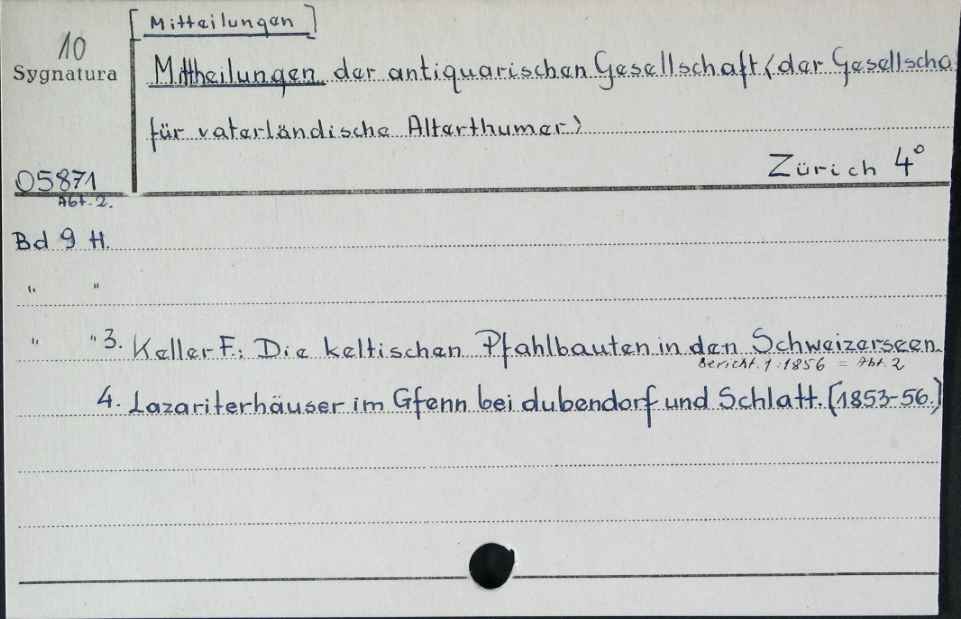 [Mitteilungen]
10
Sygnatura
Mittheilungen der antiquarischen Gesellschaft (der Gesellscha
für vaterländische Alterthumer)
Zürich 4°
05871
Abt. 2.
Bd 9 H.
" "
" " 3. Keller F.: Die keltischen Pfahlbauten in den Schweizerseen.
Bericht. 1: 1856 = Abt. 2
4. Lazariterhäuser im Gfenn bei dubendorf und Schlatt. [1853-56.]